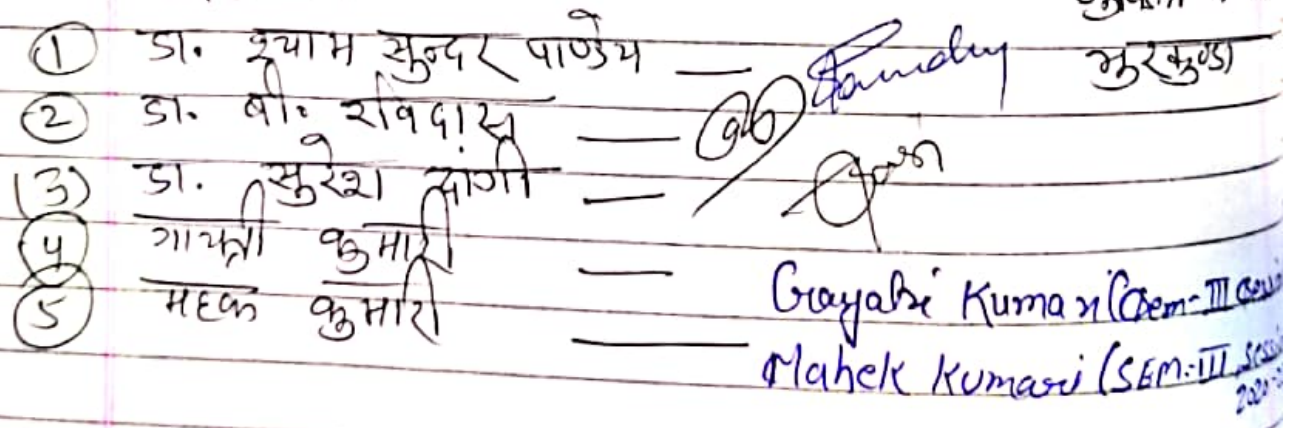 ① डा. श्याम सुन्दर पाण्डेय — भुरकुण्डा
② डा. बी. रविदास —
(3) डा. सुरेश दांगी —
④ गायत्री कुमारी — Gayatri Kumari (Sem-III
⑤ महक कुमारी — Mahek Kumari (SEM-III